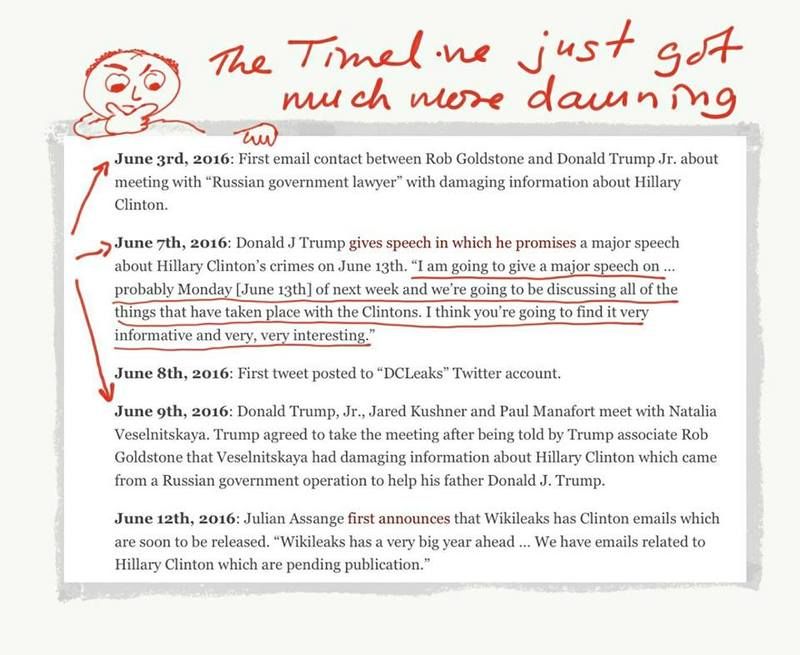 The Timeline just got
much more damning
June 3rd, 2016: First email contact between Rob Goldstone and Donald Trump Jr. about
meeting with “Russian government lawyer” with damaging information about Hillary
Clinton.
June 7th, 2016: Donald J Trump gives speech in which he promises a major speech
about Hillary Clinton’s crimes on June 13th. “I am going to give a major speech on ...
probably Monday [June 13th] of next week and we’re going to be discussing all of the
things that have taken place with the Clintons. I think you’re going to find it very
informative and very, very interesting.”
June 8th, 2016: First tweet posted to “DCLeaks” Twitter account.
June 9th, 2016: Donald Trump, Jr., Jared Kushner and Paul Manafort meet with Natalia
Veselnitskaya. Trump agreed to take the meeting after being told by Trump associate Rob
Goldstone that Veselnitskaya had damaging information about Hillary Clinton which came
from a Russian government operation to help his father Donald J. Trump.
June 12th, 2016: Julian Assange first announces that Wikileaks has Clinton emails which
are soon to be released. “Wikileaks has a very big year ahead ... We have emails related to
Hillary Clinton which are pending publication.”